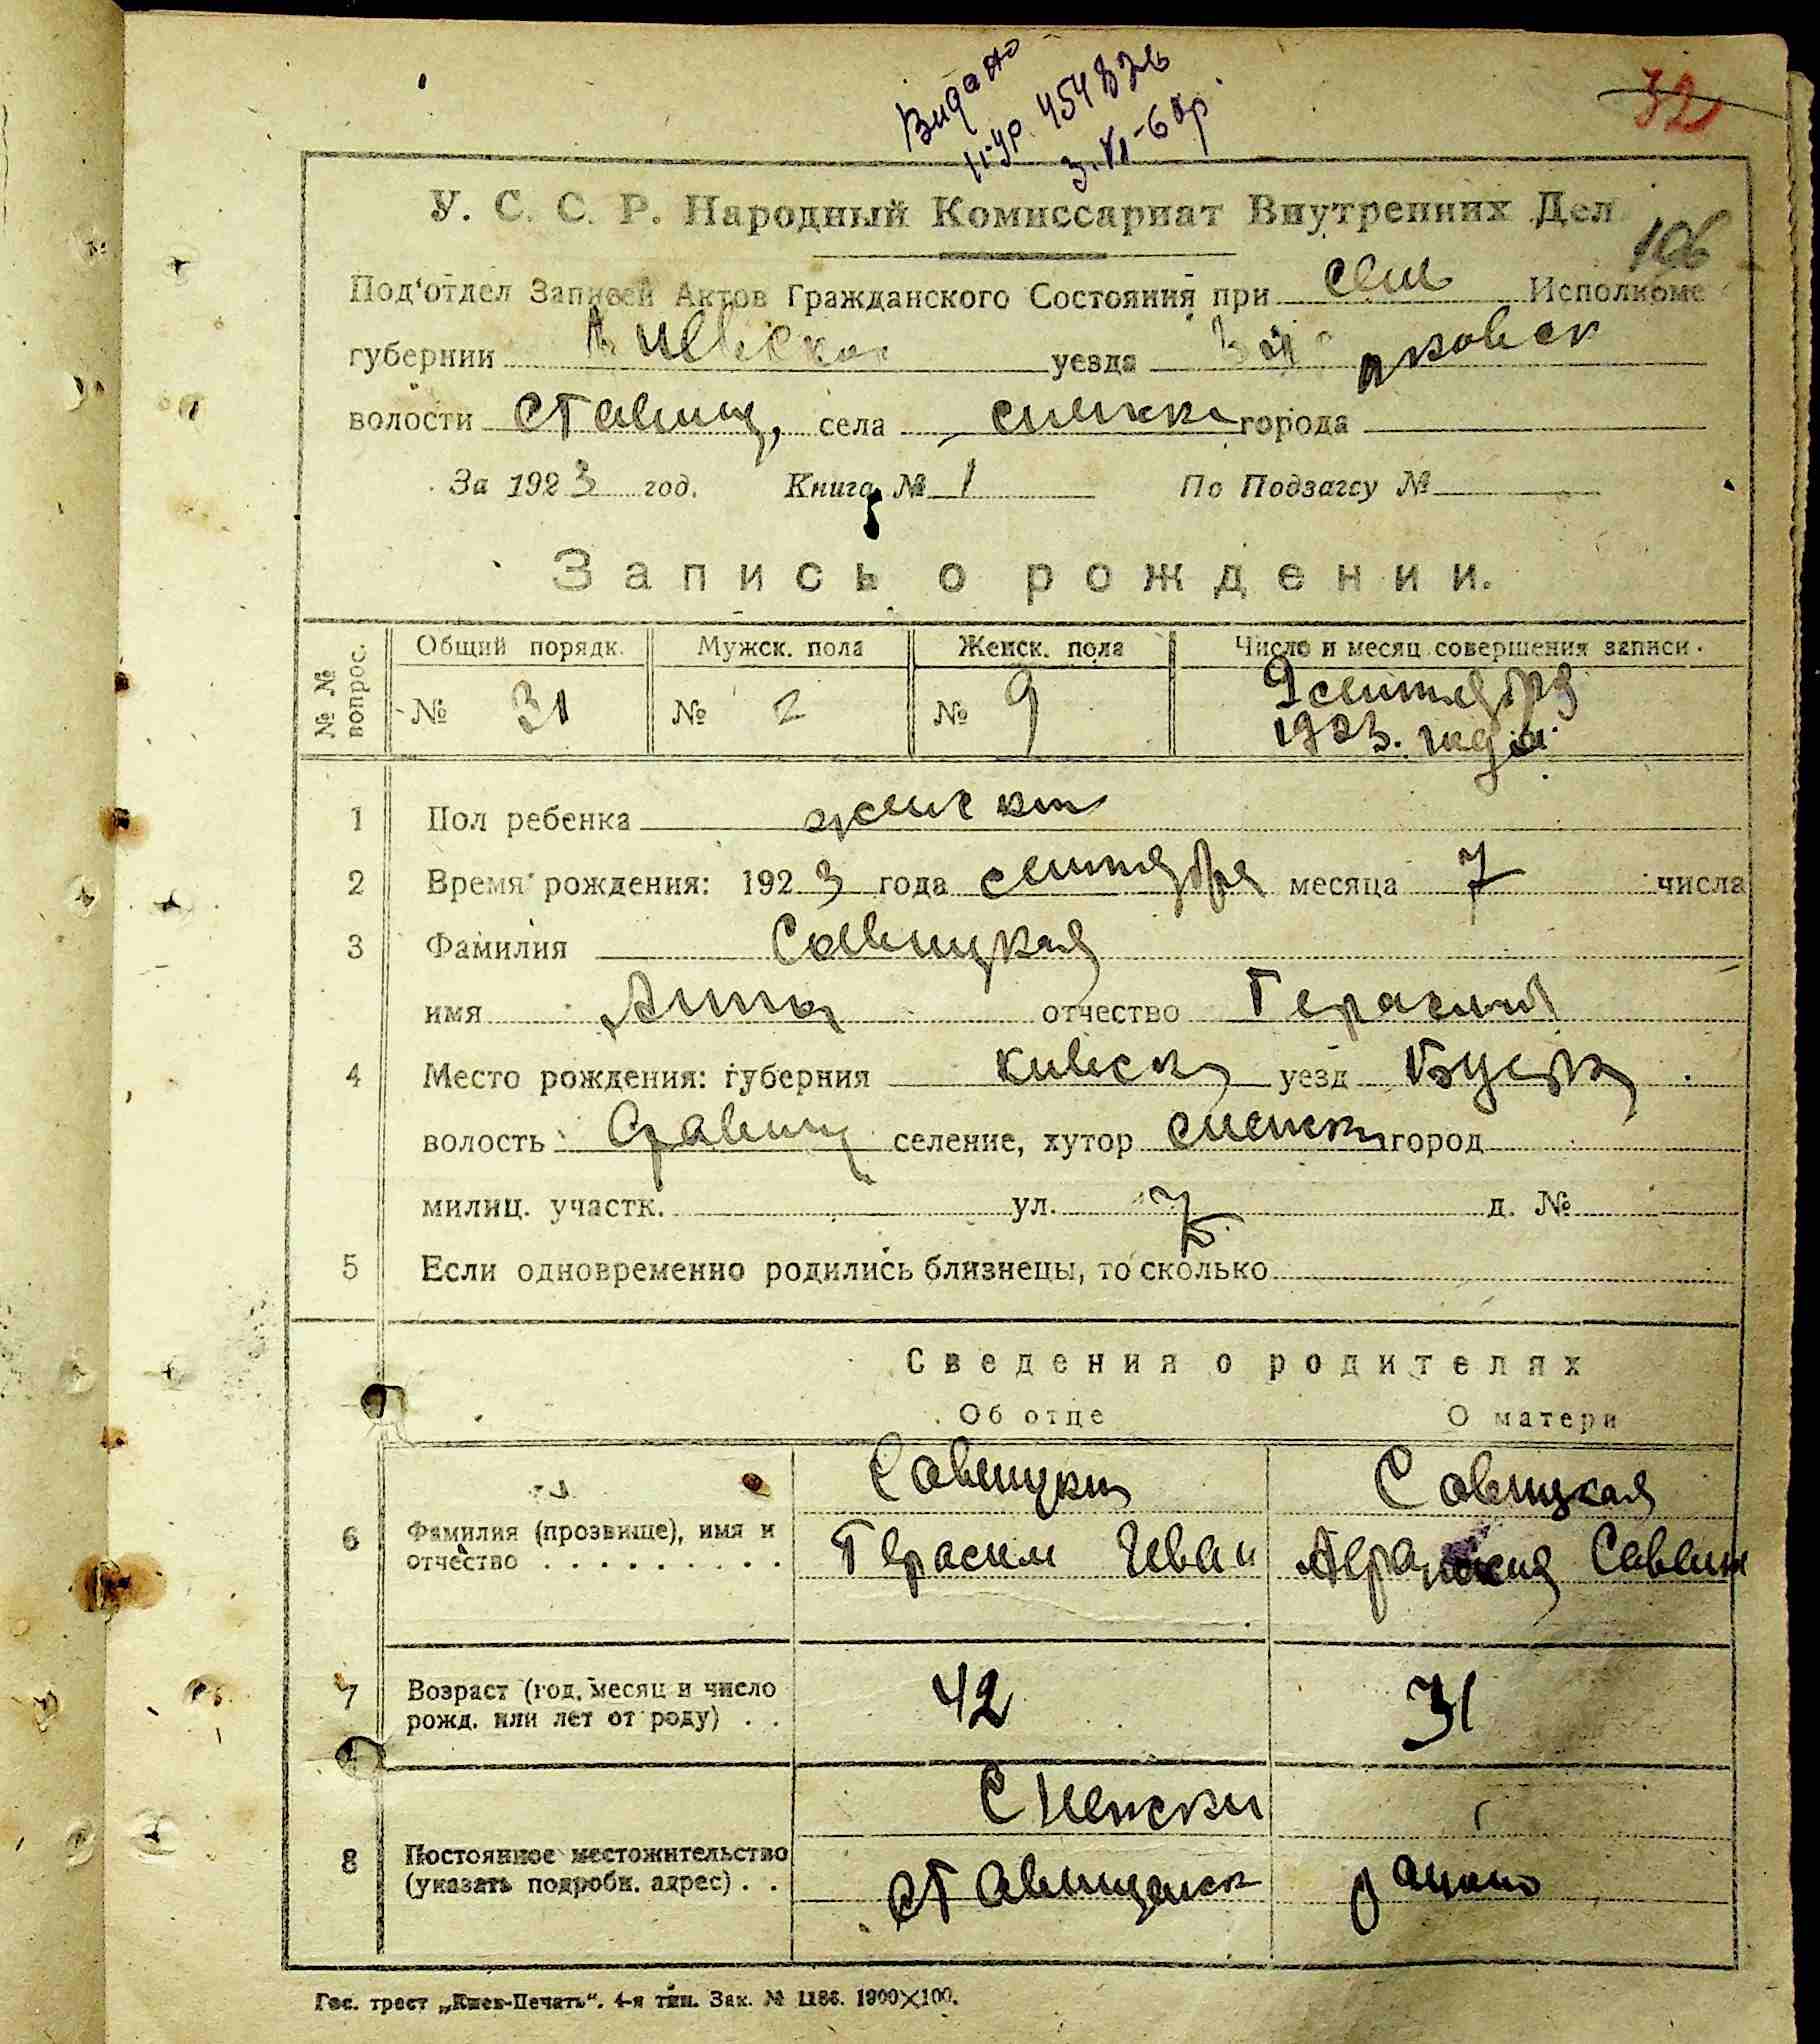 Видано
454826
32
У. С. С. Р. Народный Комиссариат Внутренних Дел
106
Под'отдел Записей Актов Гражданского Состояния при сем Исполкоме
губернии Киевской уезда
волости Ставищ, села города
За 1923 год. Книга № 1 По Подзагсу №
Запись о рождении.
№ № вопрос. Общий порядк. Мужск. пола Женск. пола Число и месяц совершения записи.
№ 31 № 2 № 9 9 сентября
1923. года
1 Пол ребенка женск
2 Время рождения: 1923 года сентября месяца 7 числа
3 Фамилия Савицкая
имя Анна отчество Герасим
4 Место рождения: губерния Киевск уезд
волость Ставищ селение, хутор город
милиц. участк. ул. д. №
5 Если одновременно родились близнецы, то сколько
Сведения о родителях
Об отце О матери
Савицкий Савицкая
6 Фамилия (прозвище), имя и
отчество . . . . . . . . . Герасим Иван Савин
7 Возраст (год, месяц и число
рожд. или лет от роду) . . 42 31
8 Постоянное местожительство
(указать подробн. адрес) . . Ставищанск
Гос. трест „Киев-Печать“. 4-я тип. Зак. № 1186. 1900×100.